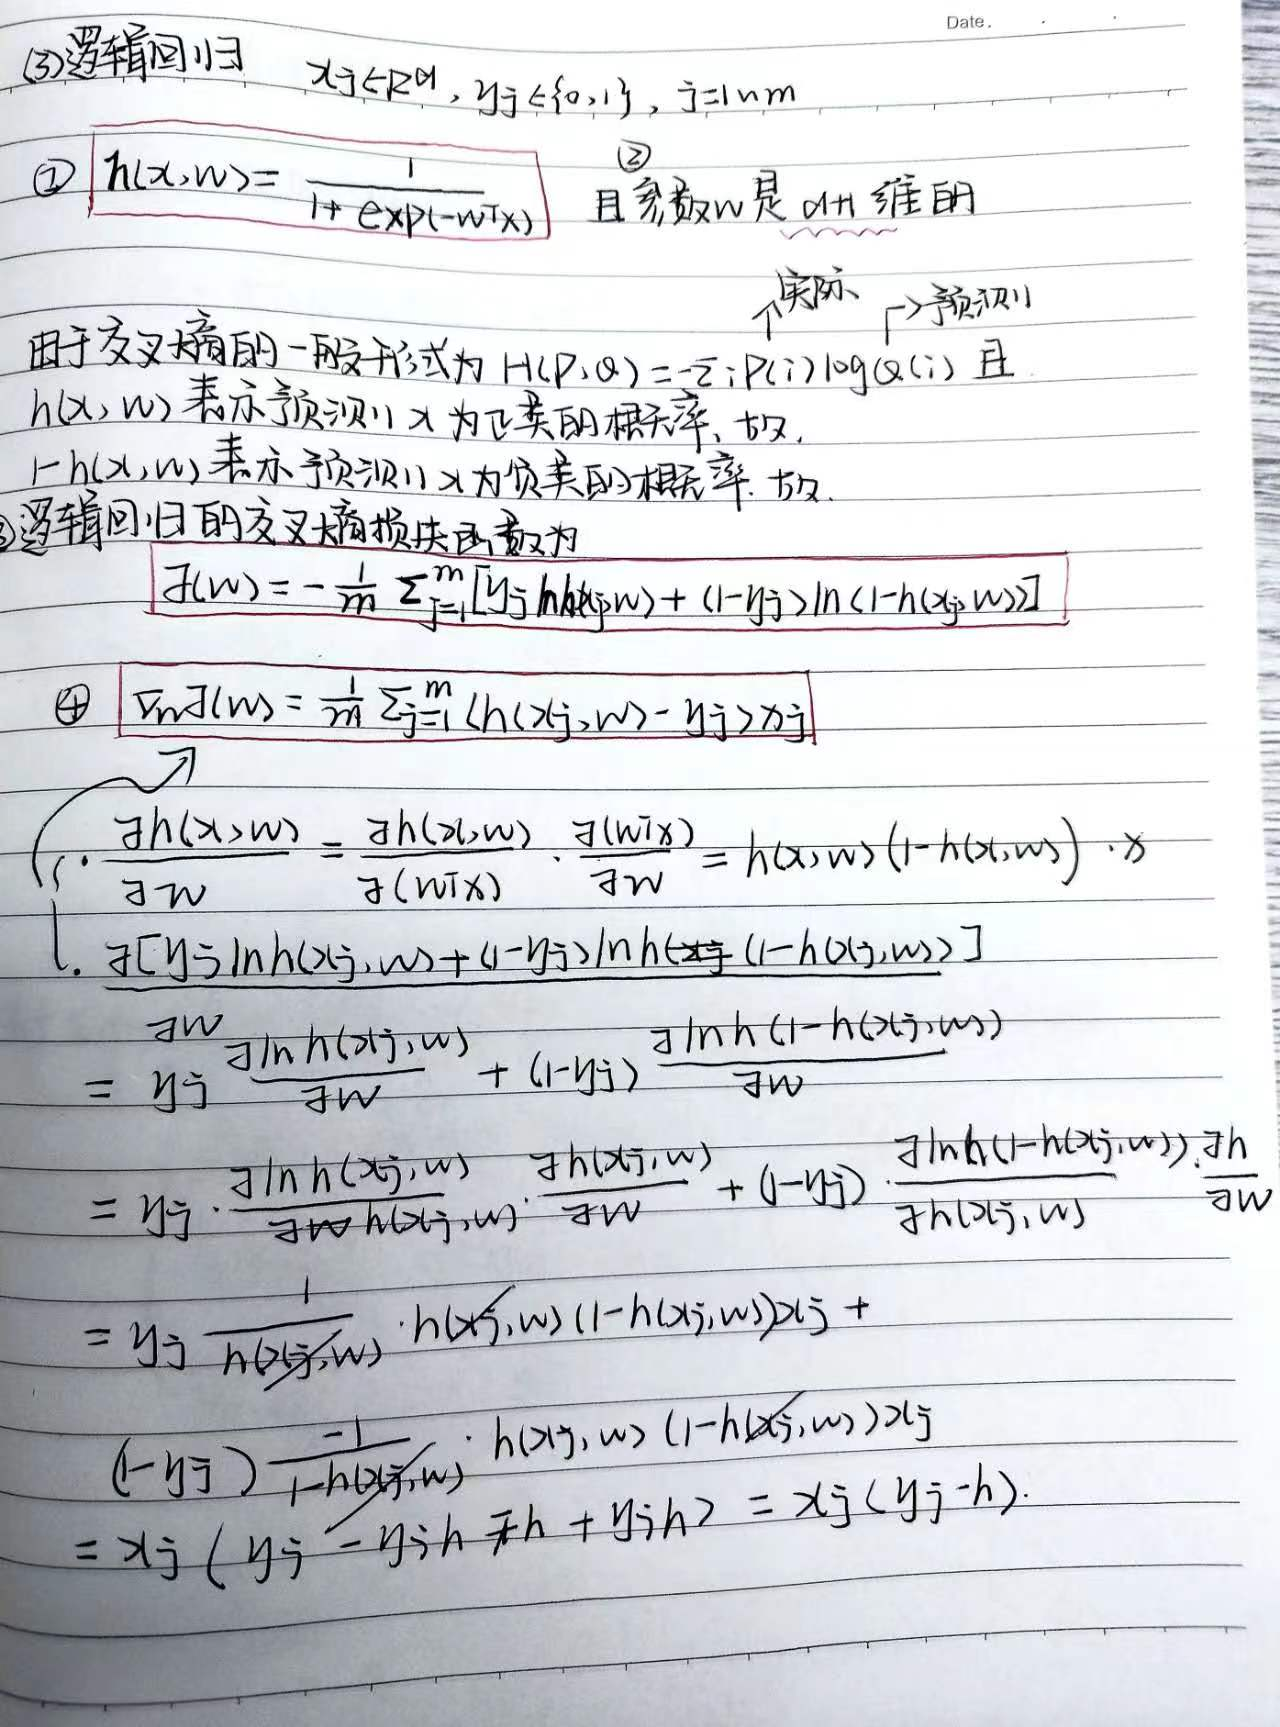 Date.
(3)逻辑回归 xj∈R^d, yj∈{0,1}, j=1~m
① h(x,w)= 1/(1+exp(-wᵀx)) ② 且参数w是d+1维的
实际 →预测
由于交叉熵的一般形式为 H(P,Q)=-Σi P(i)logQ(i) 且
h(x,w)表示预测x为正类的概率、故,
1-h(x,w)表示预测x为负类的概率.故.
③逻辑回归的交叉熵损失函数为
J(w)= -1/m Σ_{j=1}^{m}[yj ln h(xj,w)+(1-yj)ln(1-h(xj,w))]
④ ∇wJ(w)= 1/m Σ_{j=1}^{m}(h(xj,w)-yj)xj
· ∂h(x,w)/∂w = ∂h(x,w)/∂(wᵀx) · ∂(wᵀx)/∂w = h(x,w)(1-h(x,w))·x
· ∂[yj ln h(xj,w)+(1-yj)ln h(xj (1-h(xj,w))]/∂w
= yj ∂ln h(xj,w)/∂w + (1-yj) ∂ln h(1-h(xj,w))/∂w
= yj · ∂ln h(xj,w)/∂w h(xj,w) · ∂h(xj,w)/∂w + (1-yj) · ∂ln h(1-h(xj,w))/∂h(xj,w) · ∂h/∂w
= yj 1/h(xj,w) · h(xj,w)(1-h(xj,w))xj +
(1-yj) -1/(1-h(xj,w)) · h(xj,w)(1-h(xj,w))xj
= xj(yj - yjh - h + yjh) = xj(yj-h).